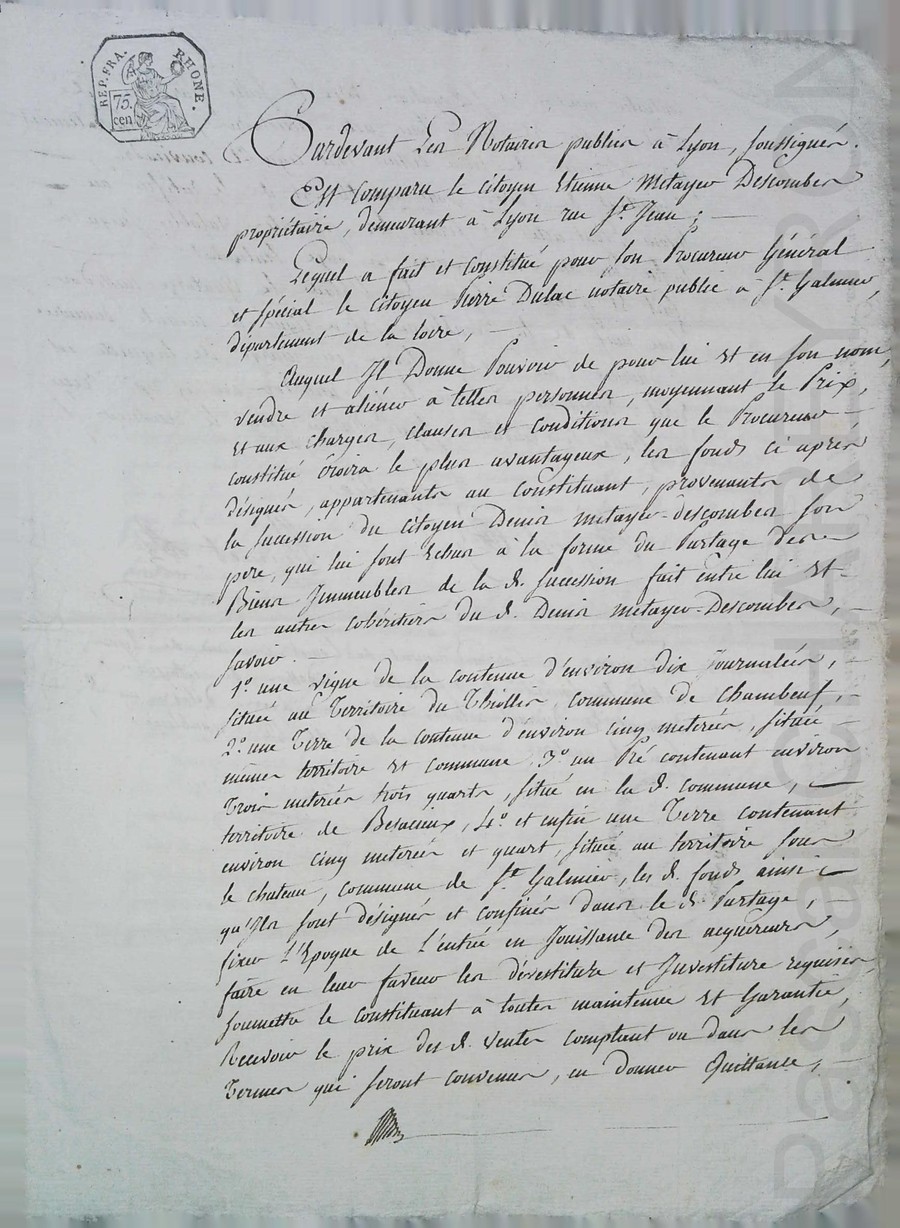 REP. FRA. RHONE.
75. cen
Pardevant Les Notaires publics à Lyon, soussignés.
Est comparu le citoyen Etienne Metayer Descombes
propriétaire, demeurant à Lyon rue St. Jean ;
Lequel a fait et constitué pour son Procureur Général
et spécial le citoyen Pierre Dulac notaire public à St. Galmier,
département de la loire,
Auquel Il Donne Pouvoir de pour lui Et en son nom,
vendre et aliéner à telles personnes, moyennant le Prix,
Et aux charges, clauses et conditions que le Procureur
constitué Croira le plus avantageux, les fonds ci après
désignés, appartenants au Constituant, provenants de
la succession du citoyen Denis metayer-descombes son
pere, qui lui sont Echus à la forme du Partage des
Biens Immeubles de la d. succession fait entre lui Et
les autres cohéritiers du d. Denis metayer-Descombes,
savoir.
1o. une vigne de la contenue d'environ dix Journalées,
située au Territoire du Thiollis, commune de chambeuf,
2o. une Terre de la contenue d'environ cinq meterées, située
mêmes territoire Et commune 3o. un Pré contenant environ
Trois meterées trois quarts, situé en la d. commune,
territoire de Besaceux, 4o. et enfin une Terre contenant
environ cinq meterées et quart, située au territoire sous
le chateau, commune de St. Galmier, les d. fonds ainsi
qu'Ils sont désignés et confinés dans le d. Partage,
fixer L'Epoque de L'entrée en Jouissance des acquereurs,
faire en leur faveur les dévestiture et Investiture requises,
soumettre le constituant à toutes maintenue Et Garantie,
Recevoir le prix des d. ventes comptant ou dans les
Termes qui seront convenus, en donner Quittance,
Pascal CHAREYRON